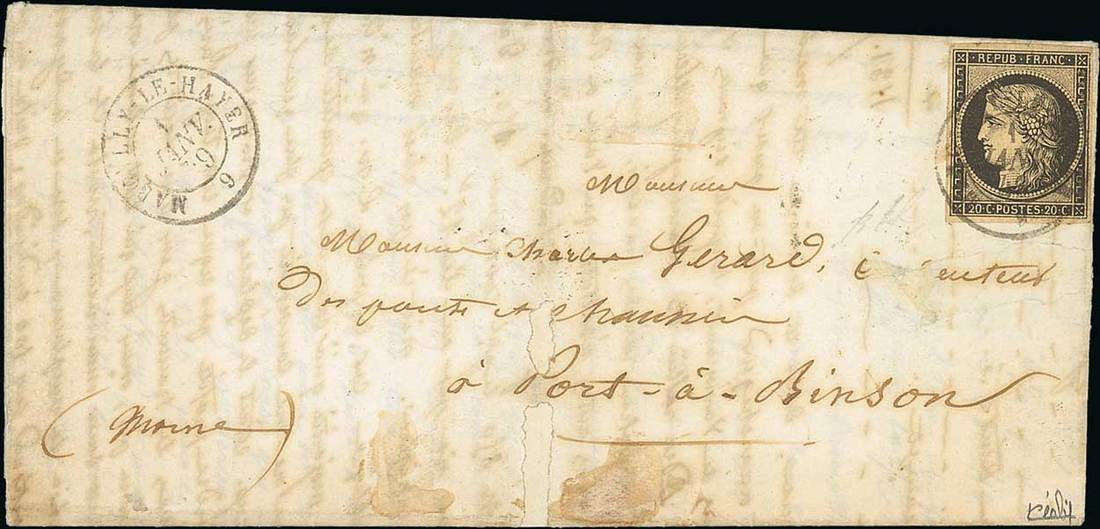 MARCILLY-LE-HAYER
1
JANV.
9
6
REPUB·FRANC·
20·C·POSTES·20·C
Monsieur
Monsieur Charles Gerard,
des ponts et chaussées
à Port-à-Binson
(Marne)